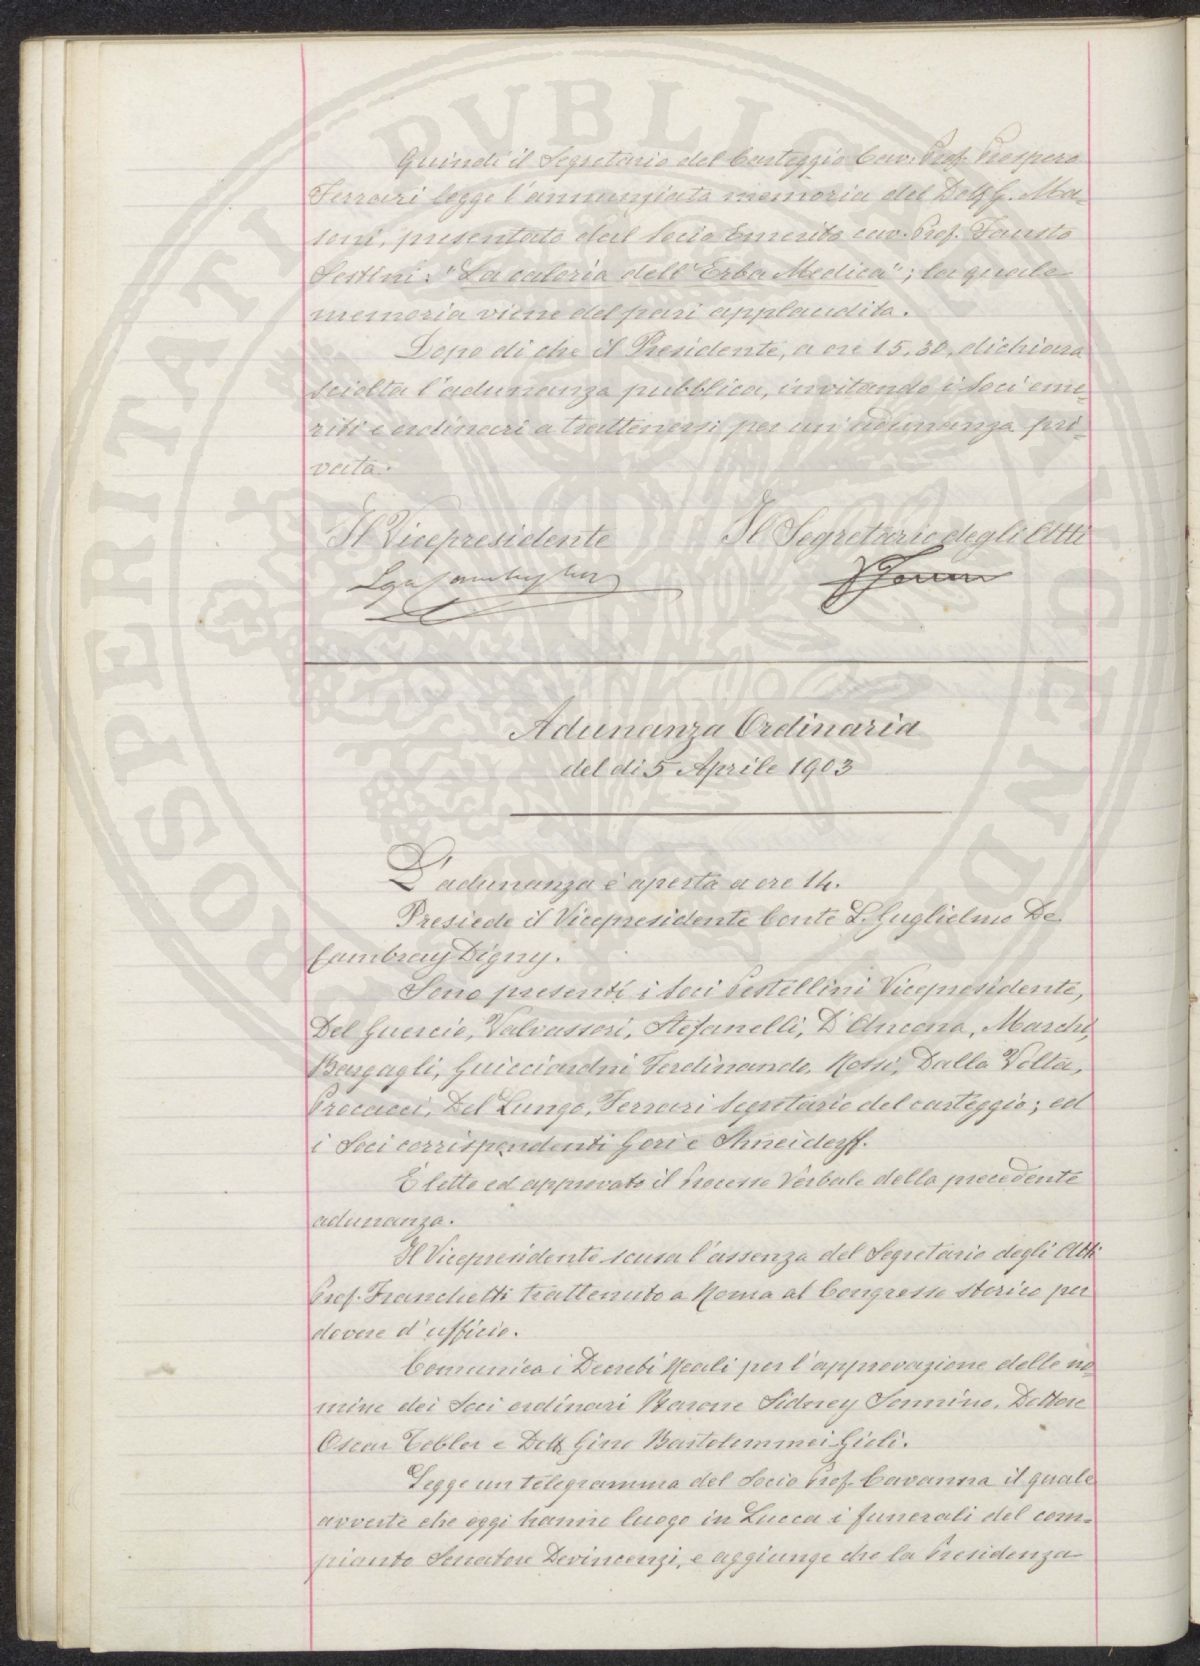 Quindi il Segretario del Carteggio Cav. Prof. Prospero
Ferrari legge l'annunziata memoria del Dott. G. Ma-
soni, presentato dal Socio Emerito cav. Prof. Fausto
Sestini: "La caloria dell'Erba Medica"; la quale
memoria viene del pari applaudita.
Dopo di che il Presidente, a ore 15,30, dichiara
sciolta l'adunanza pubblica, invitando i Soci eme-
riti e ordinari a trattenersi per un'adunanza pri-
vata.
Il Vicepresidente Il Segretario degli Atti
Adunanza Ordinaria
del dì 5 Aprile 1903
L'adunanza è aperta a ore 14.
Presiede il Vicepresidente Conte L. Guglielmo De
Cambray Digny.
Sono presenti i Soci Pestellini Vicepresidente,
Del Guercio, Valvassori, Stefanelli, D'Ancona, Marchi,
Bargagli, Guicciardini Ferdinando, Rossi, Dalla Volta,
Procacci, Del Lungo, Ferrari Segretario del carteggio; ed
i Soci corrispondenti Gori e Shneiderff.
È letto ed approvato il Processo Verbale della precedente
adunanza.
Il Vicepresidente scusa l'assenza del Segretario degli Atti
Prof. Franchetti trattenuto a Roma al Congresso storico per
dovere d'ufficio.
Comunica i Decreti Reali per l'approvazione delle no-
mine dei Soci ordinari Barone Sidney Sonnino, Dottore
Oscar Tobler e Dott. Gino Bartolommei Gioli.
Legge un telegramma del Socio Prof. Cavanna il quale
avverte che oggi hanno luogo in Lucca i funerali del com-
pianto Senatore Devincenzi, e aggiunge che la Presidenza
PROSPERITATI PVBLICAE AVGENDAE